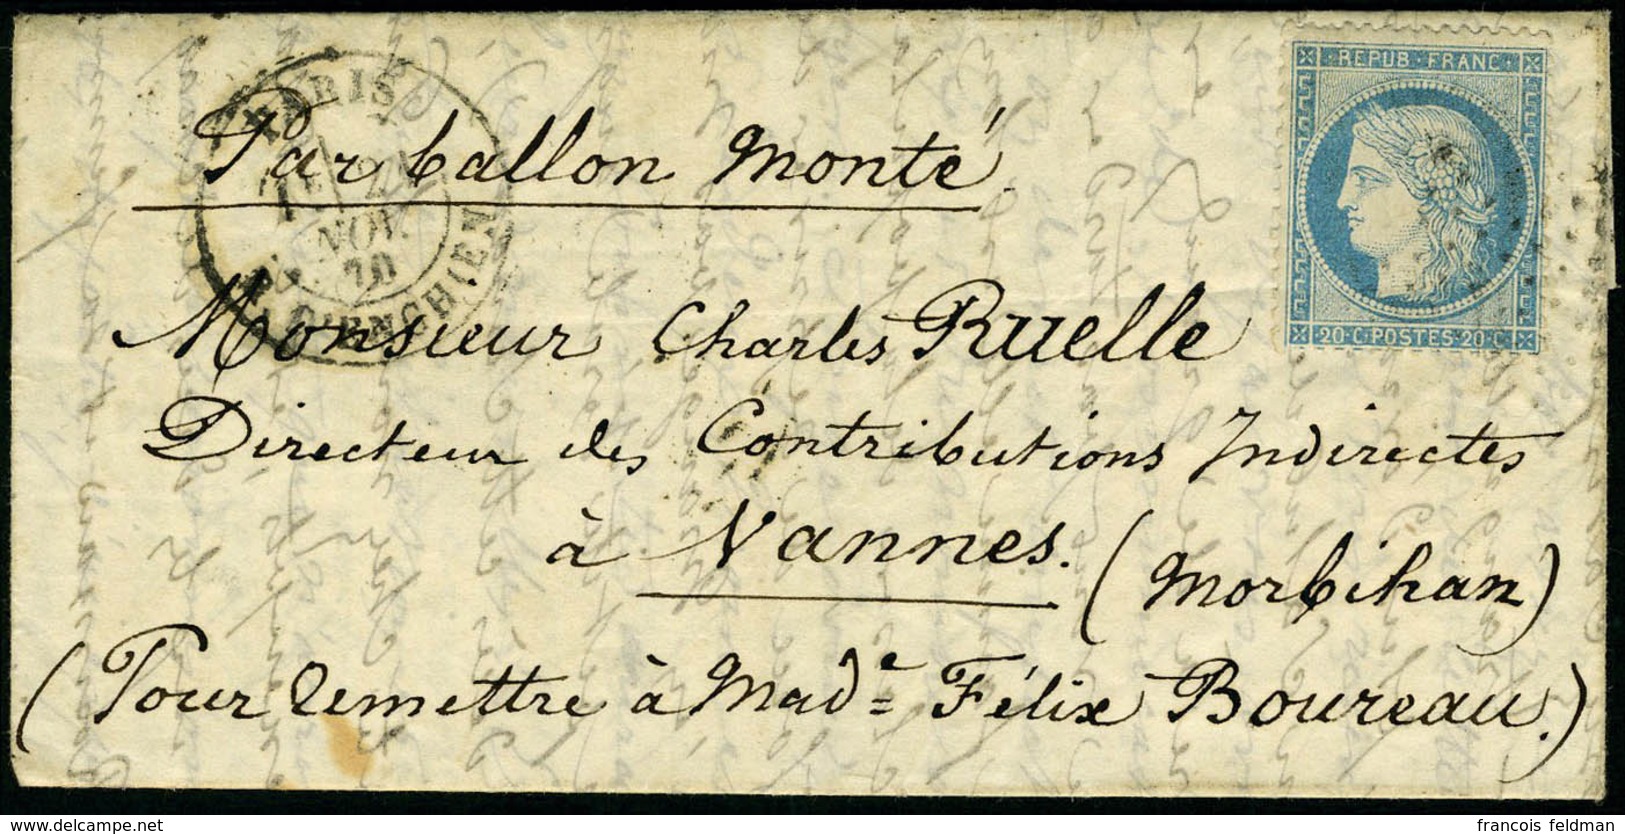 REPUB·FRANC
PARIS
Par ballon monté.
NOV.
70
Monsieur Charles Ruelle
20·C·POSTES·20·C
Directeur des Contributions Indirectes
à Vannes.
(Morbihan)
(Pour remettre à Made Félix Boureau.)
https://www.delcampe.net
francois feldman